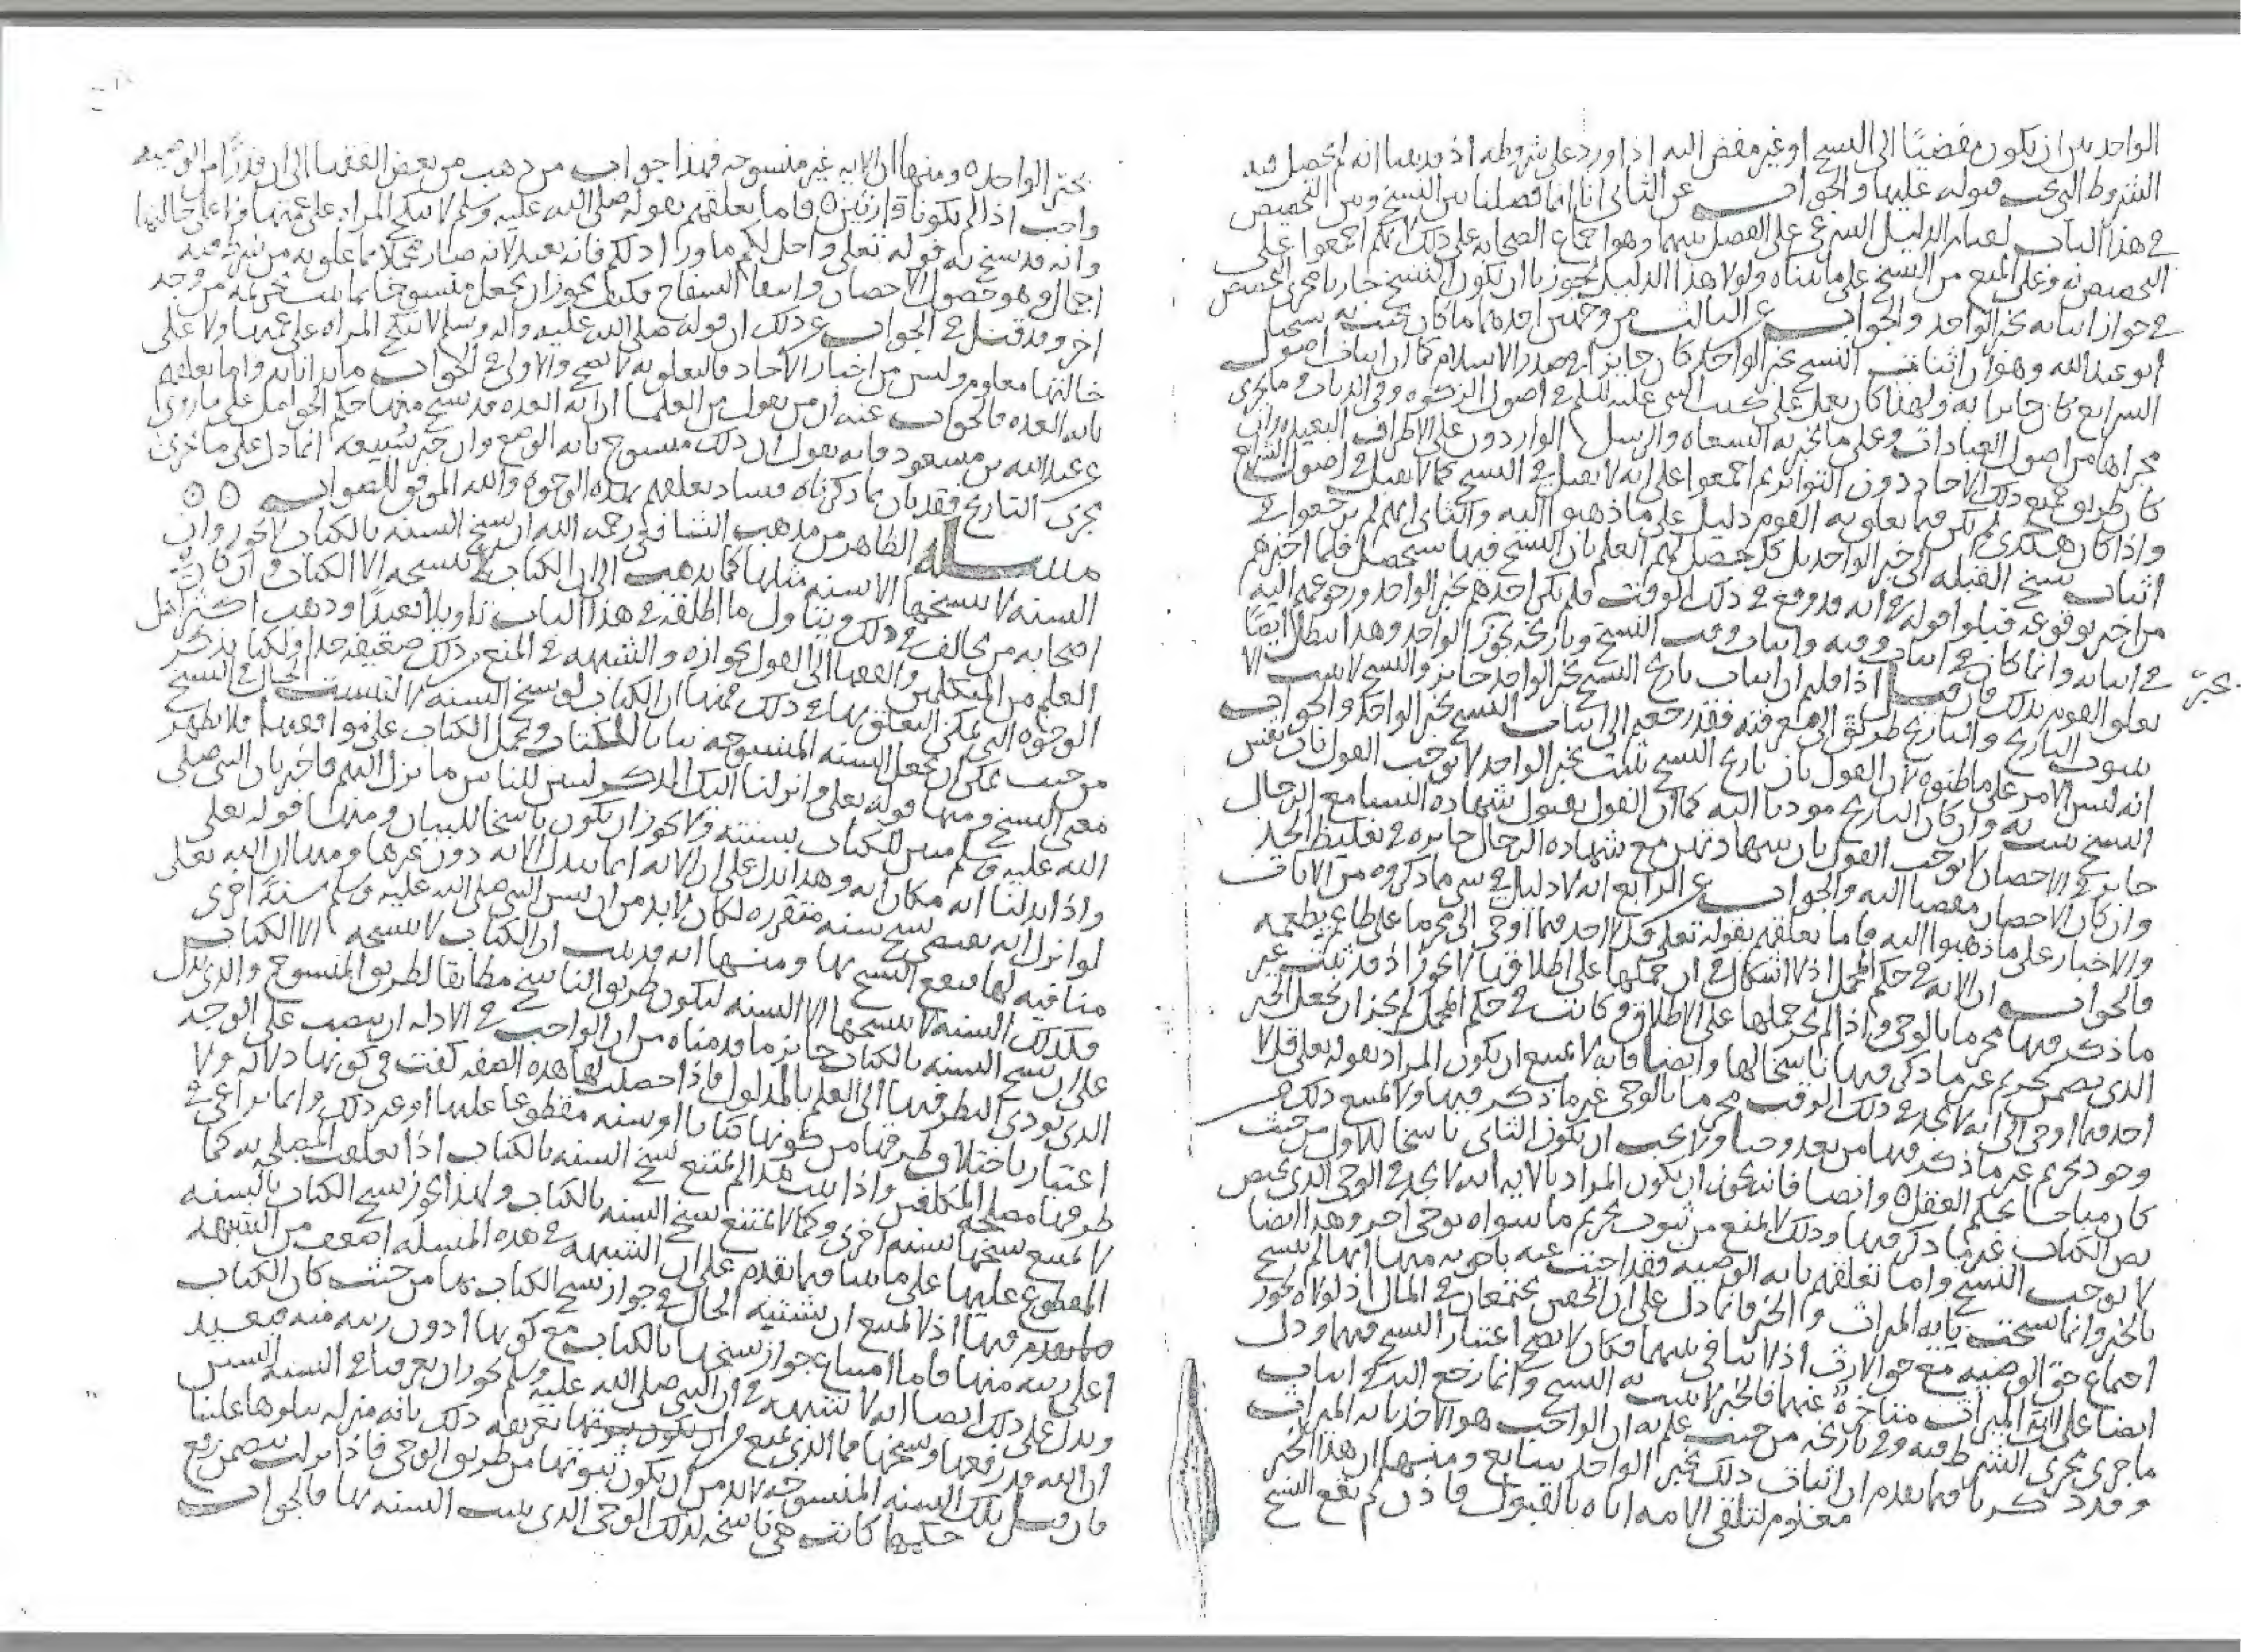 الواحد بين ان يكون مفضيًا الى النسخ او غير مفض اليه اذا ورد على شروطه اذ قد بينا انه لم يحصل فيه
الشروط التي يجب قبوله عليها والجواب عن الثاني انا انما فصلنا بين النسخ وبين التخصيص
في هذا الباب لقيام الدليل الشرعي على الفصل بينهما وهو اجماع الصحابه على ذلك لانهم اجمعوا على
التخصيص به وعلى المنع من النسخ على ما بيناه ولولا هذا الدليل لجوزنا ان يكون النسخ جاريا مجرى التخصيص
في جواز اثباته بخبر الواحد والجواب عن الثالث من وجهين احدهما ما كان يجيب به شيخنا
ابو عبد الله وهو ان اثبات النسخ بخبر الواحد كان جايزا في صدر الاسلام كما ان اثبات اصول
الشرايع كان جايزا به ولهذا كان يعمل على كتب النبي عليه السلم في اصول الزكوه وفي الديات وما يجري
مجراها من اصول العبادات وعلى ما يخبر به السعاه والرسل الواردون على الاطراف البعيده وان
كان طريق جميع ذلك الاحاد دون التواتر ثم اجمعوا على انه لا يقبل في النسخ كما لا يقبل في اصول الشرايع
واذا كان هكذي لم يكن فيما تعلق به القوم دليل على ما ذهبوا اليه والثاني انهم لم يرجعوا في
اثبات نسخ القبله الى خبر الواحد بل كل حصل لهم العلم بان النسخ فيها سيحصل فلما اخبرهم
من اخبر بوقوعه قبلوا قوله في انه قد وقع في ذلك الوقت فلم يكن اخذهم بخبر الواحد ورجوعهم اليه
في اثباته وانما كان في اثبات وقته واثبات وقت النسخ وتاريخه يجوز بخبر الواحد وهذا يبطل ايضًا
تعلق القوم بذلك فان قيل اذا قلتم ان اثبات تاريخ النسخ بخبر الواحد جايز والنسخ لا يثبت الا
بثبوت التاريخ والتاريخ طريق الى معرفته فقد رجعتم الى اثبات النسخ بخبر الواحد والجواب
انه ليس الامر على ما ظنوه لان القول بان تاريخ النسخ يثبت بخبر الواحد لا يوجب القول بان نفس
النسخ يثبت به وان كان التاريخ موديا اليه كما ان القول بقبول شهاده النسا مع الرجال
جايز في الاحصان لا يوجب القول بان شهادتهن مع شهاده الرجال جايزه في تغليظ الحد
وان كان الاحصان مفضيا اليه والجواب عن الرابع انه لا دليل في شي ما ذكروه من الايات
والاخبار على ما ذهبوا اليه فاما تعلقهم بقوله تعلى قل لا اجد فيما اوحي الى محرما على طاعم يطعمه
فالجواب ان الايه في حكم المجمل اذ لا اشكال في ان حملها على اطلاقها لا يجوز اذ قد ثبت غير
ما ذكر فيها محرما بالوحي واذا لم يجز حملها على الاطلاق وكانت في حكم المجمل لم يجز ان يجعل الخبر
الذي يضمن تحريم غير ما ذكر فيها ناسخا لها وايضا فانه لا يمتنع ان يكون المراد بقوله تعلى قل لا
اجد فيما اوحي الى انه لا يجد في ذلك الوقت محرما بالوحي غير ما ذكر فيها ولا يمنع ذلك من
وجود تحريم غير ما ذكر فيها من بعد وحيا ولا يجب ان يكون الثاني ناسخا للاول من حيث
كان مباحا بحكم العقل ٥ وايضا فانه يجوز ان يكون المراد بالايه انه لا يجد في الوحي الذي يخص
بص الكتاب غير ما ذكر فيها وذلك لا يمنع من ثبوت تحريم ما سواه بوحي اخر وهذا ايضا
لا يوجب النسخ واما تعلقهم بايه الوصيه فقد اجيب عنه باجوبه منها انها لم تنسخ
بالخبر وانما نسخت بايه الميراث والخبر فانما دل على ان الحقين يجتمعان في المال اذ لولاه لجوز
اجتماع حق الوصيه مع حق الارث اذ لا تنافي بينهما فكان لا يصح اعتبار النسخ فيهما ودل
ايضا على ان ايه الميراث متاخرة عنها فالخبر لا يثبت به النسخ وانما رجع اليه في اثبات
ما جرى مجرى الشرط فيه وفي تاريخه من حيث علم به ان الواجب هو الاخذ بايه الميراث
وقد ذكرنا فيما تقدم ان اثبات ذلك بخبر الواحد سايغ ومنها ان هذا الخبر
معلوم لتلقي الامه اياه بالقبول فاذن لم يقع النسخ
بخبر
بخبر الواحد ٥ ومنها ان الايه غير منسوخه فهذا جواب من ذهب من بعض الفقها الى ان قدرًا من الوصيه
واجب اذا لم يكونا وارثين ٥ فاما تعلقهم بقوله صلى الله عليه وسلم لا تنكح المراه على عمتها ولا على خالتها
وانه قد نسخ به قوله تعلى واحل لكم ما ورا ذلكم فانه بعيد لانه صار مجملا بما علق به من شرط فيه
اجمال وهو حصول الاحصان وانتفا السفاح فكيف يجوز ان يجعل منسوخا بما ثبت تحريمه من وجه
اخر وقد قيل في الجواب عن ذلك ان قوله صلى الله عليه واله وسلم لا تنكح المراه على عمتها ولا على
خالتها معلوم وليس من اخبار الاحاد فالتعلق به لا يصح والاولى في الجواب ما بدانا به واما تعلقهم
بايه العده فالجواب عنه ان من يقول من العلما ان ايه العده قد نسخ منها حكم الحوامل على ما روي
عن عبد الله بن مسعود فانه يقول ان ذلك منسوخ بايه الوضع وان خبر سُبيعه انما دل على ما جرى
مجرى التاريخ فقد بان بما ذكرناه فساد تعلقهم بهذه الوجوه والله الموفق للصواب ٥ ٥
مسـله الظاهر من مذهب الشافعي رحمه الله ان نسخ السنه بالكتاب لا يجوز وان
السنه لا ينسخها الا سنه مثلها كما يذهب الى ان الكتاب لا ينسخه الا الكتاب وان كان في
اصحابه من يخالف في ذلك ويتاول ما اطلقه في هذا الباب تاويلا بعيدًا وذهب اكثر اهل
العلم من المتكلمين والفقها الى القول بجوازه والشبهه في المنع من ذلك ضعيفه جدا ولكنا نذكر
الوجوه التي يمكن التعلق بها في ذلك فمنها ان الكتاب لو نسخ السنه لالتبست الحال في النسخ
من حيث يمكن ان تجعل السنه المنسوخه بيانا للكتاب ويحمل الكتاب على موافقتها فلا يظهر
معنى النسخ ومنها قوله تعلى وانزلنا اليك الذكر لتبين للناس ما نزل اليهم فاخبر بان النبي صلى
الله عليه وسلم مبين للكتاب بسنته ولا يجوز ان يكون ناسخا للبيان ومنها قوله تعلى
واذا بدلنا ايه مكان ايه وهذا يدل على ان الايه انما تبدل الايه دون غيرها ومنها ان الله تعلى
لو انزل ايه تقتضي نسخ سنه متقرره لكان لا بد من ان يسن النبي صلى الله عليه وسلم سنةً اخرى
منافيه لها فيقع النسخ بها ومنها انه قد ثبت ان الكتاب لا ينسخه الا الكتاب
فكذلك السنه لا ينسخها الا السنه ليكون طريق الناسخ مطابقا لطريق المنسوخ والذي يدل
على ان نسخ السنه بالكتاب جايز ما قدمناه من ان الواجب في الادله ان ينصب على الوجه
الذي يودي النظر فيها الى العلم بالمدلول فاذا حصلت لها هذه الصفه كفت في كونها دلاله ولا
اعتبار باختلاف طرقها من كونها كتابا او سنه مقطوعا عليها او غير ذلك وانما يراعى في
طرقها مصلحه المكلفين واذا ثبت هذا لم يمتنع نسخ السنه بالكتاب اذا تعلقت المصلحه به كما
لا يمتنع نسخها بسنه اخرى وكما لا يمتنع نسخ السنه بالكتاب ولهذا يجوز نسخ الكتاب بالسنه
المقطوع عليها على ما بينا فيما تقدم على ان الشبهه في هذه المسله اضعف من الشبهه
فيما تقدم فيها اذ لا يمتنع ان تشتبه الحال في جواز نسخ الكتاب بها من حيث كان الكتاب
اعلى رتبه منها فاما امتناع جواز نسخها بالكتاب مع كونها ادون رتبه منه فبعيد
ويدل على ذلك ايضا انه لا شبهه في ان النبي صلى الله عليه وسلم يجوز ان يعرفنا في السنه السنن
ان الله قد رفعها ونسخها فما الذي يمنع من ان يكون ثبوتها تعريفه ذلك بانه منزله يتلوها علينا
فان قيل تلك السنه المنسوخه لا بد من ان يكون ثبوتها من طريق الوحي فاذا نزلت بتضمن رفع
حكمها كانت هي ناسخه لذلك الوحي الذي يثبت السنه بها فالجواب